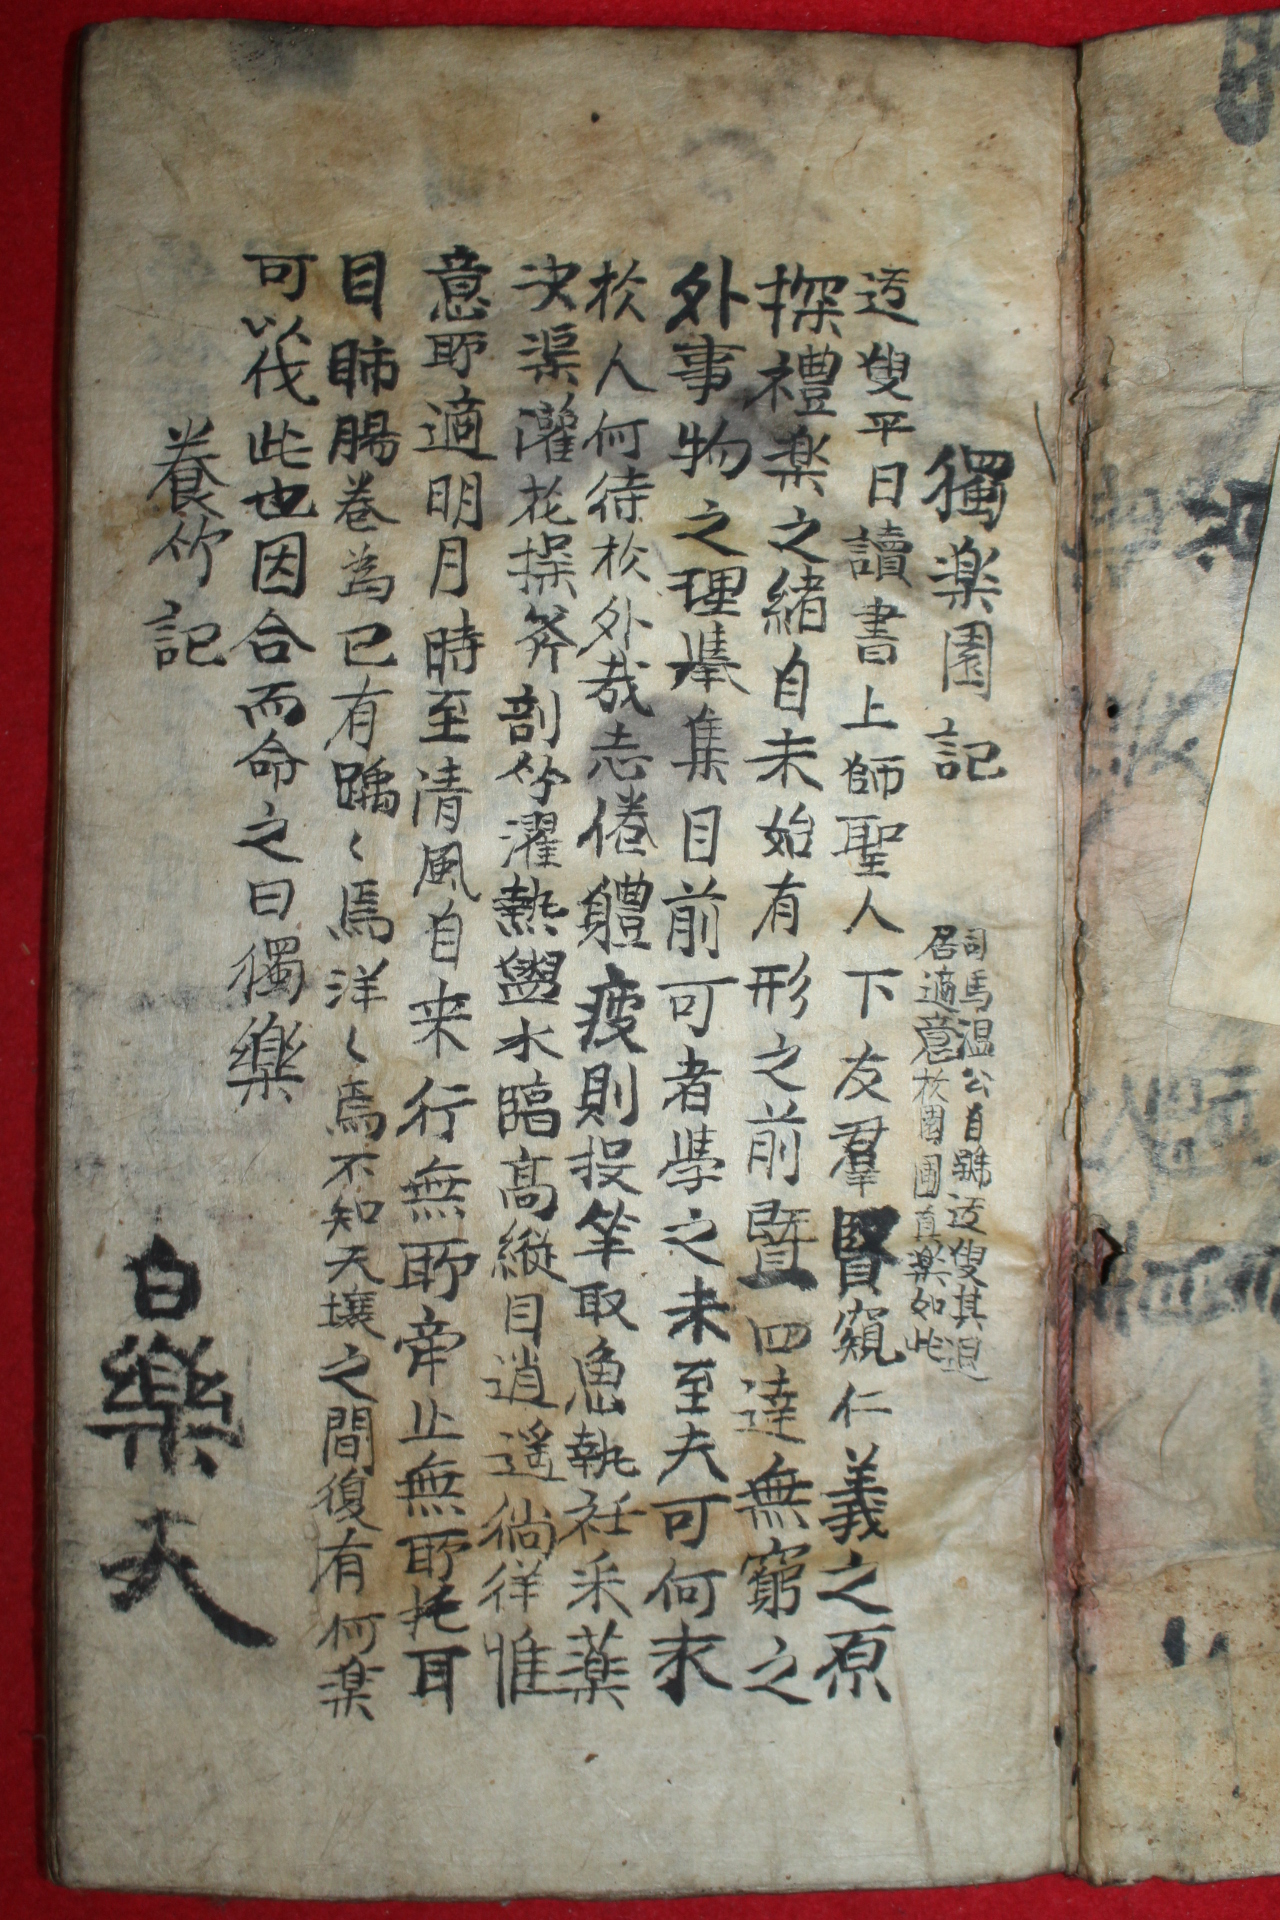 獨楽園記
司馬温公自號迃叟其退
居適意扵園圃真楽如此
迃叟平日讀書上師聖人下友羣賢窺仁義之原
探禮楽之緒自未始有形之前曁四達無窮之
外事物之理舉集目前可者學之未至夫可何求
扵人何待扵外哉志倦體疲則投竿取魚執衽采薬
决渠灌花操斧剖竹濯熱盥水臨高縱目逍遥徜徉惟
意所適明月時至清風自来行無所牽止無所柅耳
目肺腸巻為己有踽〻焉洋〻焉不知天壤之間復有何楽
可以伐此也因合而命之曰獨樂
養竹記
白樂天